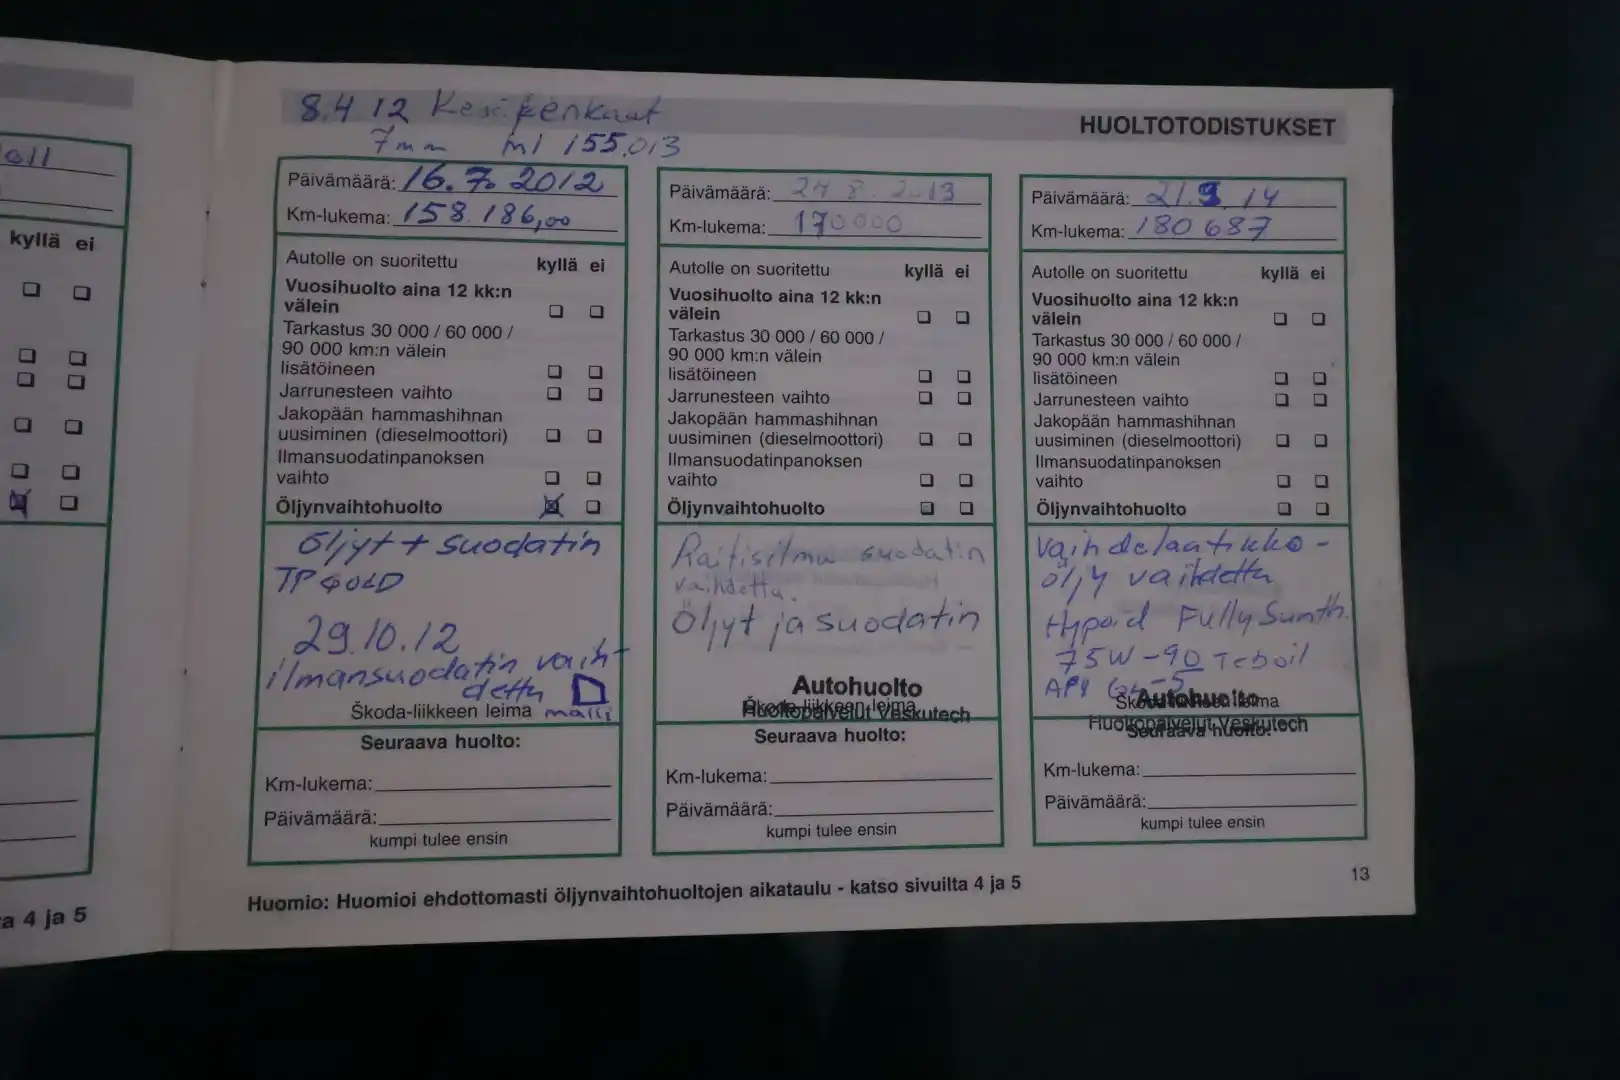 oll
kyllä ei
a 4 ja 5
8.4 12 Kesärenkaat
7mm ml 155.013
HUOLTOTODISTUKSET
Päivämäärä: 16.7. 2012
Km-lukema: 158.186,00
Autolle on suoritettu kyllä ei
Vuosihuolto aina 12 kk:n
välein
Tarkastus 30 000 / 60 000 /
90 000 km:n välein
lisätöineen
Jarrunesteen vaihto
Jakopään hammashihnan
uusiminen (dieselmoottori)
Ilmansuodatinpanoksen
vaihto
Öljynvaihtohuolto
öljyt + suodatin
TP GOLD
29.10.12
ilmansuodatin vaih-
dettu
malli
Škoda-liikkeen leima
Seuraava huolto:
Km-lukema:
Päivämäärä:
kumpi tulee ensin
Päivämäärä: 24 8. 2013
Km-lukema: 170000
Autolle on suoritettu kyllä ei
Vuosihuolto aina 12 kk:n
välein
Tarkastus 30 000 / 60 000 /
90 000 km:n välein
lisätöineen
Jarrunesteen vaihto
Jakopään hammashihnan
uusiminen (dieselmoottori)
Ilmansuodatinpanoksen
vaihto
Öljynvaihtohuolto
Raitisilma suodatin
vaihdettu.
Öljyt ja suodatin
Autohuolto
Škoda-liikkeen leima
Huoltopalvelut Veskutech
Seuraava huolto:
Km-lukema:
Päivämäärä:
kumpi tulee ensin
Päivämäärä: 21.9.14
Km-lukema: 180 687
Autolle on suoritettu kyllä ei
Vuosihuolto aina 12 kk:n
välein
Tarkastus 30 000 / 60 000 /
90 000 km:n välein
lisätöineen
Jarrunesteen vaihto
Jakopään hammashihnan
uusiminen (dieselmoottori)
Ilmansuodatinpanoksen
vaihto
Öljynvaihtohuolto
Vaihdelaatikko-
öljy vaihdettu
Hypoid Fully Synth.
75W-90 Teboil
API GL-5
Autohuolto
Škoda-liikkeen leima
Huoltopalvelut Veskutech
Seuraava huolto:
Km-lukema:
Päivämäärä:
kumpi tulee ensin
Huomio: Huomioi ehdottomasti öljynvaihtohuoltojen aikataulu - katso sivuilta 4 ja 5
13